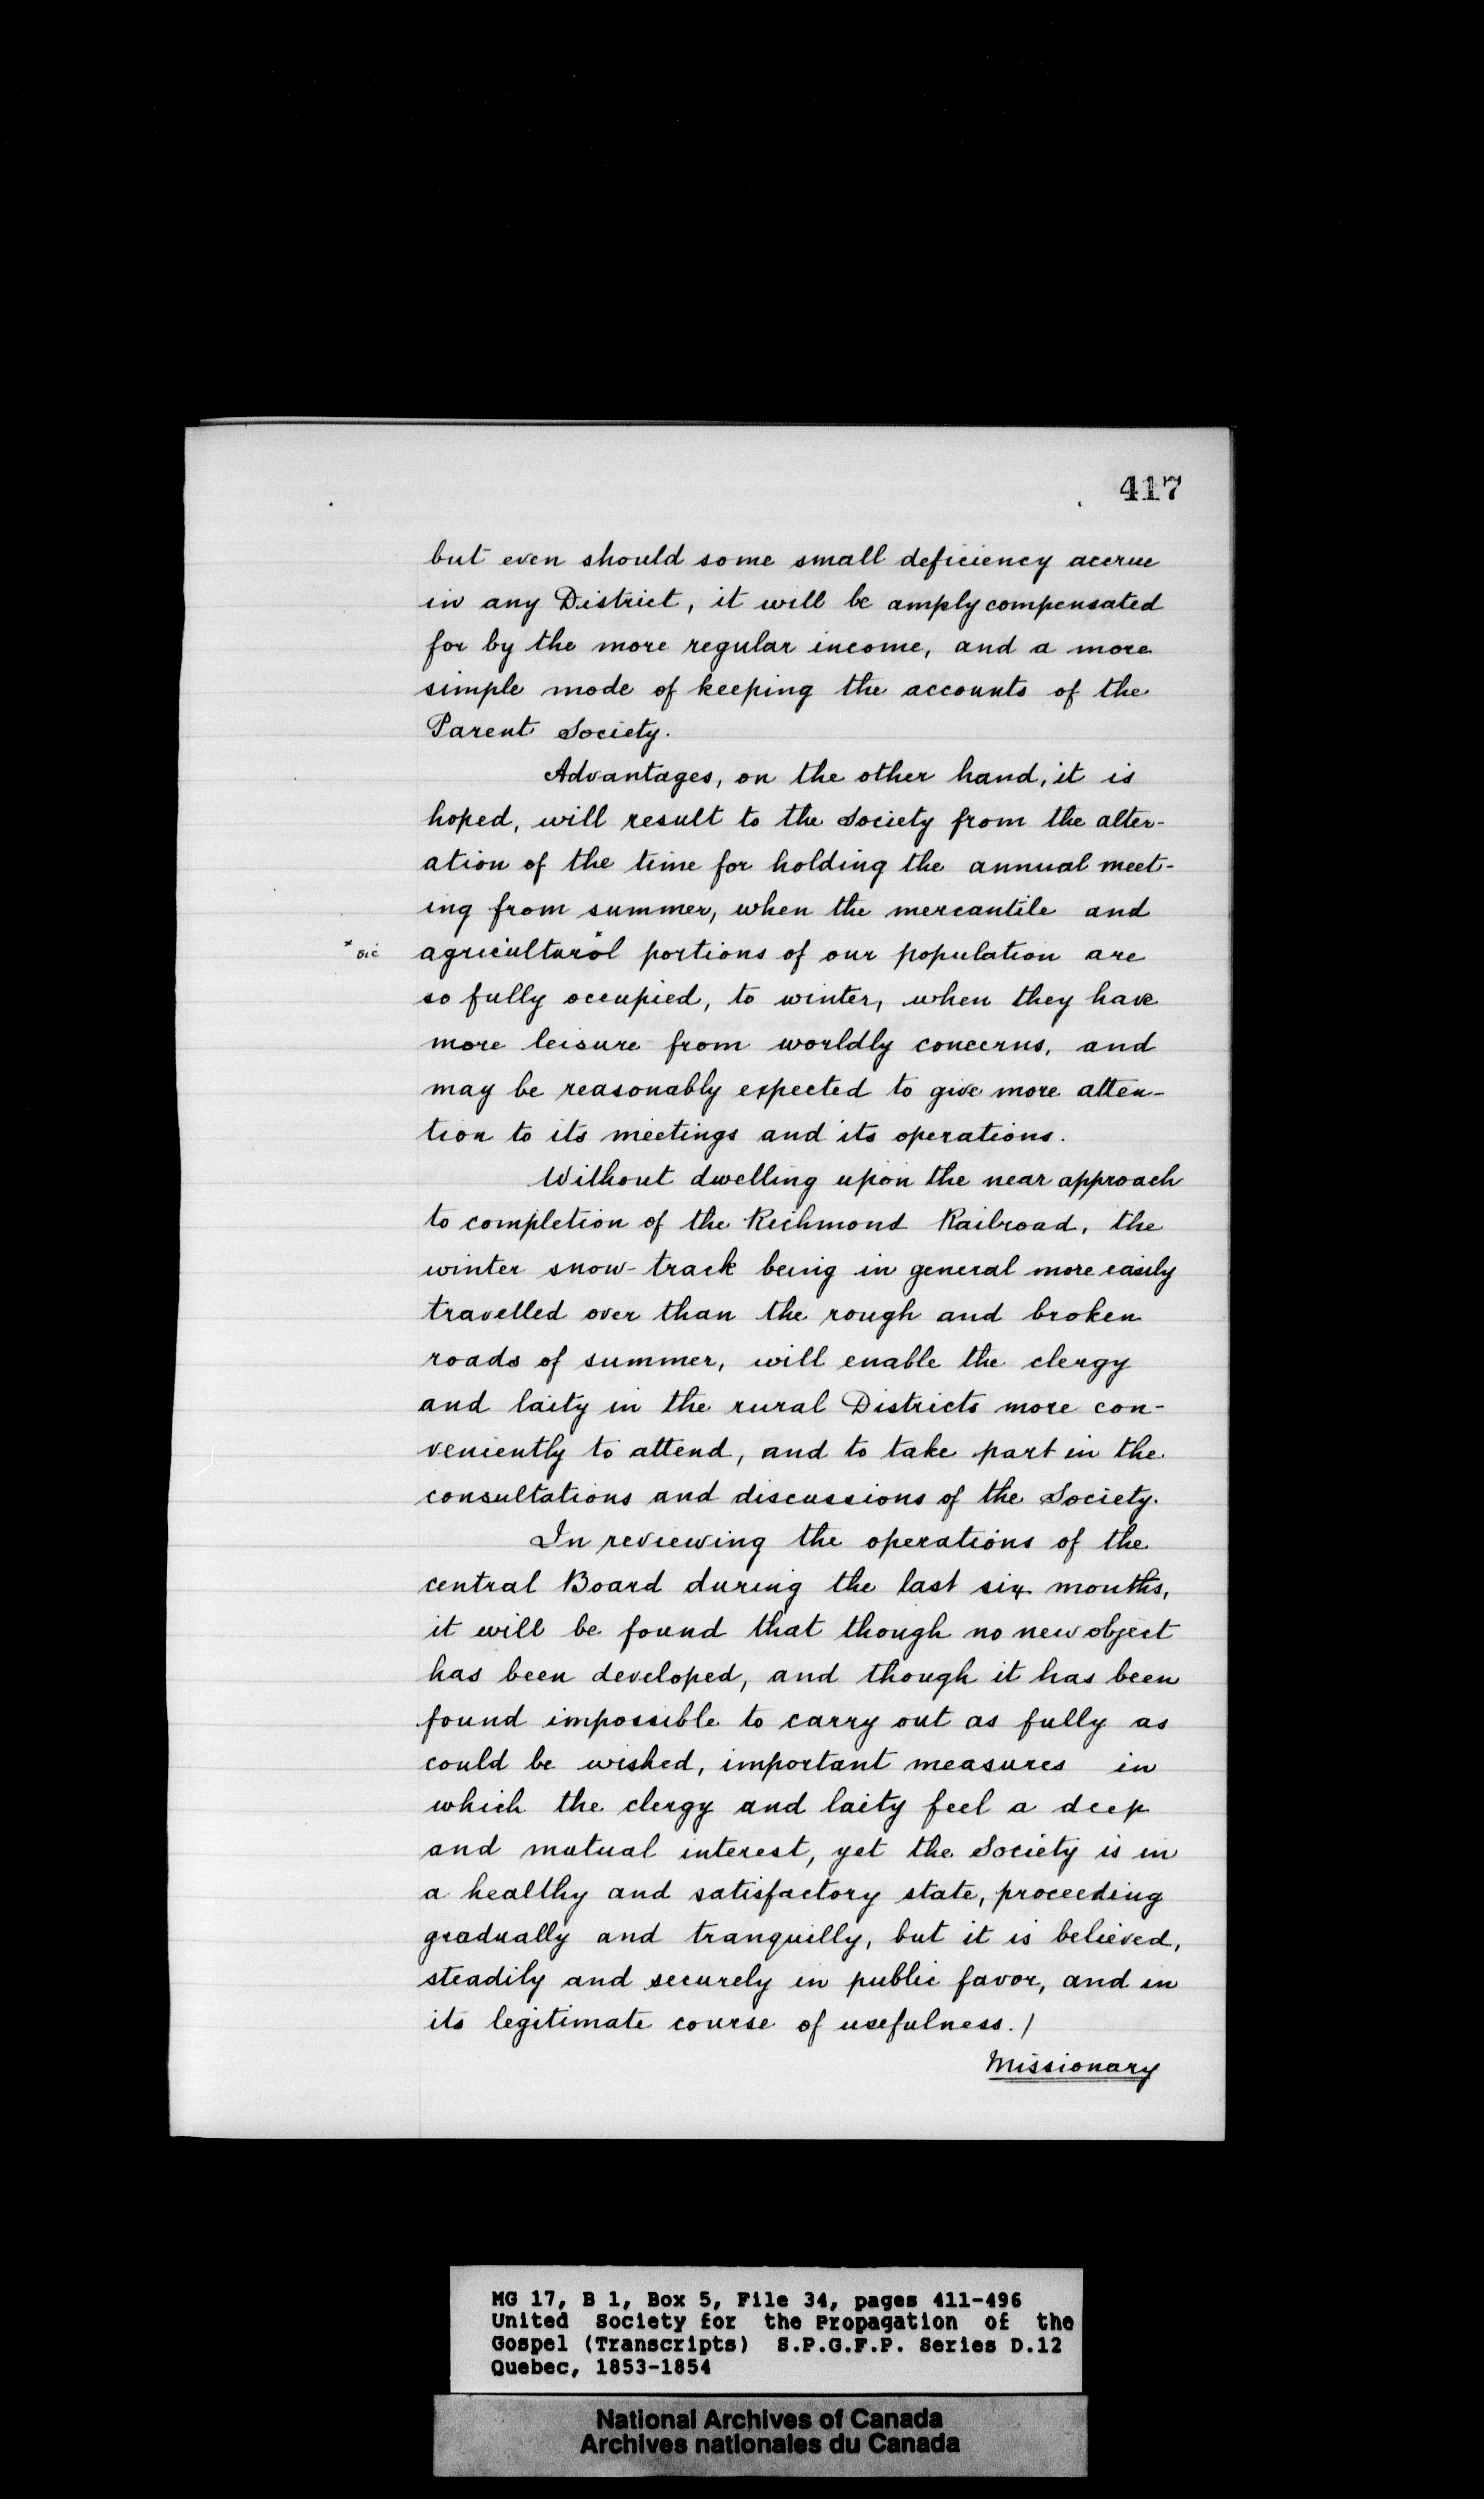 417
but even should some small deficiency accrue
in any District, it will be amply compensated
for by the more regular income, and a more
simple mode of keeping the accounts of the
Parent Society.
Advantages, on the other hand, it is
hoped, will result to the Society from the alter-
ation of the time for holding the annual meet-
ing from summer, when the mercantile and
* sic agriculturol* portions of our population are
so fully occupied, to winter, when they have
more leisure from worldly concerns, and
may be reasonably expected to give more atten-
tion to its meetings and its operations.
Without dwelling upon the near approach
to completion of the Richmond Railroad, the
winter snow-track being in general more easily
travelled over than the rough and broken
roads of summer, will enable the clergy
and laity in the rural Districts more con-
veniently to attend, and to take part in the
consultations and discussions of the Society.
In reviewing the operations of the
central Board during the last six months,
it will be found that though no new object
has been developed, and though it has been
found impossible to carry out as fully as
could be wished, important measures in
which the clergy and laity feel a deep
and mutual interest, yet the Society is in
a healthy and satisfactory state, proceeding
gradually and tranquilly, but it is believed,
steadily and securely in public favor, and in
its legitimate course of usefulness. /
Missionary
MG 17, B 1, Box 5, File 34, pages 411-496
United Society for the Propagation of the
Gospel (Transcripts) S.P.G.F.P. Series D.12
Quebec, 1853-1854
National Archives of Canada
Archives nationales du Canada